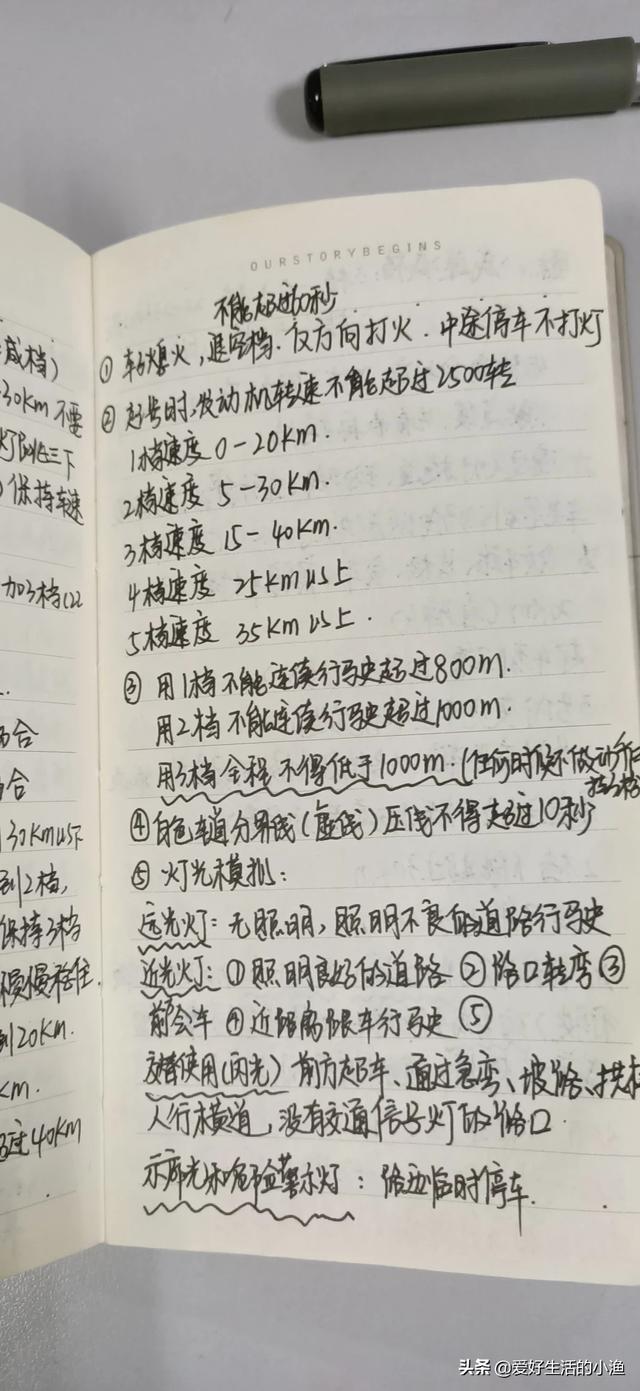 OURSTORYBEGINS
不能超过10秒
① 车子熄火，退空档、反方向打火．中途停车不打灯
② 起步时，发动机转速不能超过2500转
1档速度 0-20km.
2档速度 5-30km.
3档速度 15-40km.
4档速度 25km以上
5档速度 35km以上.
③ 用1档不能连续行驶超过800m.
用2档不能连续行驶超过1000m.
用3档全程不得低于1000m.(任何时候不做动作
④白色车道分界线(虚线)压线不得超过10秒
⑤ 灯光模拟：
远光灯：无照明，照明不良的道路行驶
近光灯：①照明良好的道路 ②路口转弯 ③
前会车 ④近距离跟车行驶 ⑤
交替使用(闪光) 前方超车、通过急弯、坡路、拱桥
人行横道，没有交通信号灯的路口.
示廓光和危险警示灯：路边临时停车.
减档)
30km 不要
保持车速
加3档(22
合
合
30km以下
到2档，
保持3档
慢慢稳住.
到20km.
km.
过40km
头条 @爱好生活的小渔